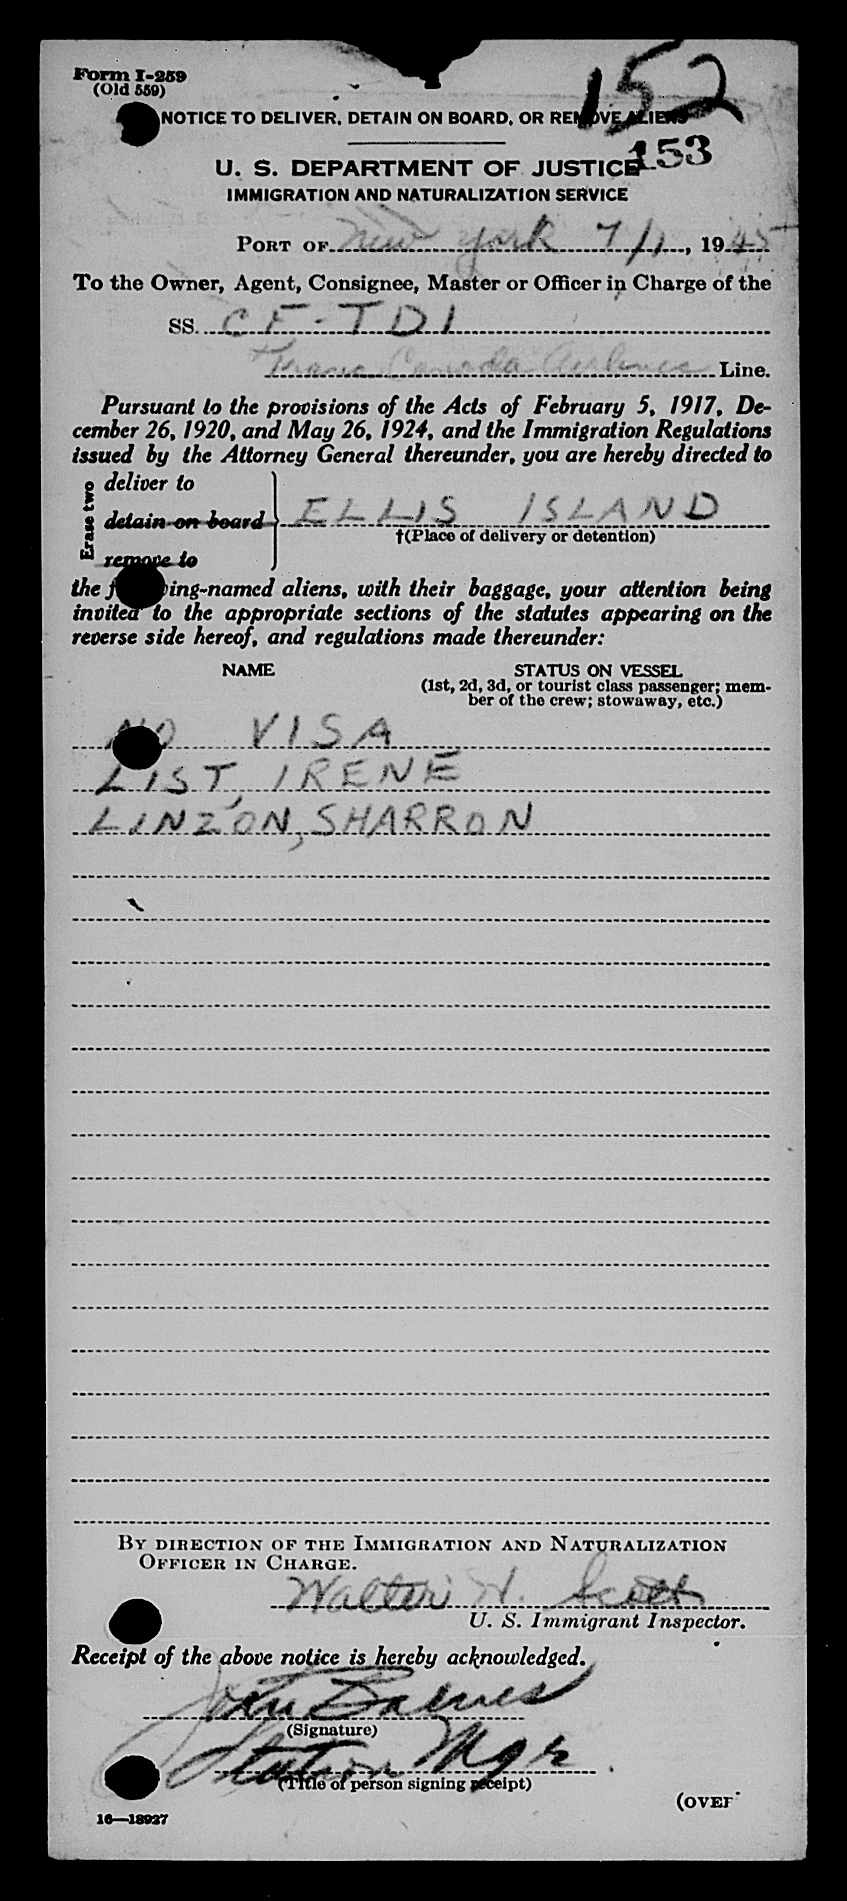 Form I-259
(Old 559)
152
NOTICE TO DELIVER, DETAIN ON BOARD, OR REMOVE ALIENS
153
U. S. DEPARTMENT OF JUSTICE
IMMIGRATION AND NATURALIZATION SERVICE
PORT OF New York 7/1, 1945
To the Owner, Agent, Consignee, Master or Officer in Charge of the
SS. CF-TDI
Trans Canada Airlines Line.
Pursuant to the provisions of the Acts of February 5, 1917, De-
cember 26, 1920, and May 26, 1924, and the Immigration Regulations
issued by the Attorney General thereunder, you are hereby directed to
Erase two
deliver to
detain on board ELLIS ISLAND
†(Place of delivery or detention)
remove to
the following-named aliens, with their baggage, your attention being
invited to the appropriate sections of the statutes appearing on the
reverse side hereof, and regulations made thereunder:
NAME STATUS ON VESSEL
(1st, 2d, 3d, or tourist class passenger; mem-
ber of the crew; stowaway, etc.)
NO VISA
LIST, IRENE
LINZON, SHARRON
BY DIRECTION OF THE IMMIGRATION AND NATURALIZATION
OFFICER IN CHARGE.
Walter H. Scott
U. S. Immigrant Inspector.
Receipt of the above notice is hereby acknowledged.
John Barnes
(Signature)
Station Mgr.
(Title of person signing receipt)
(OVER
16—18927